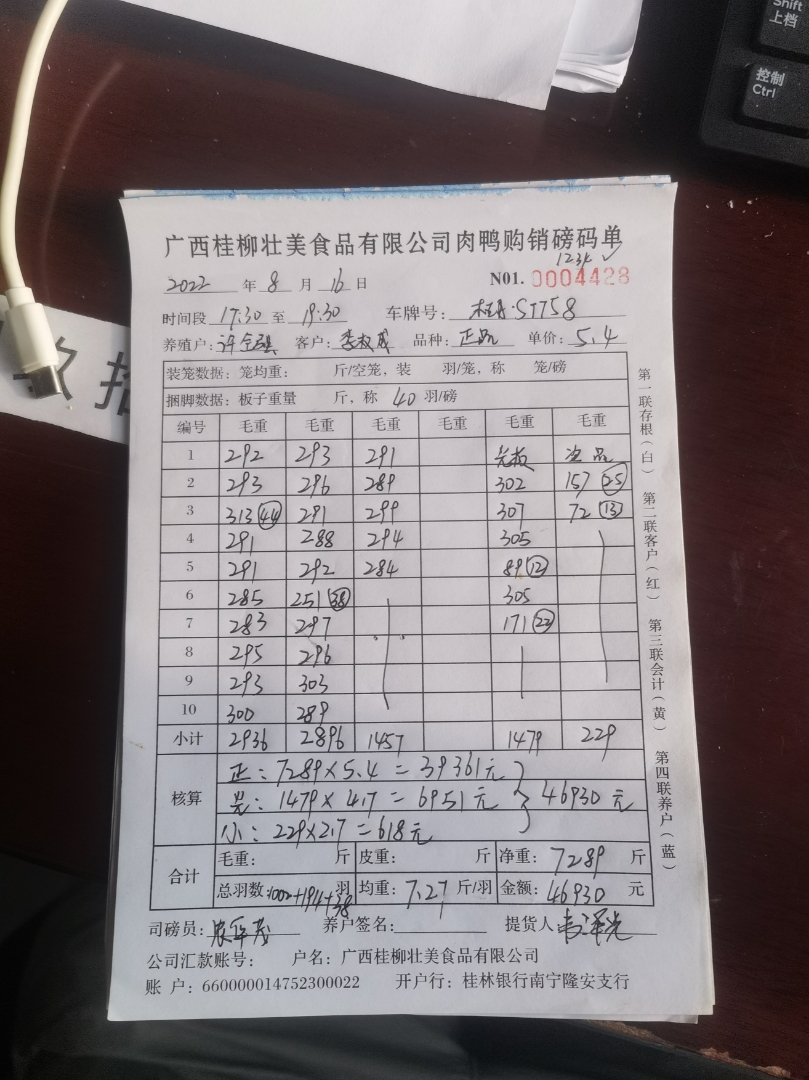 Shift
上档
控制
Ctrl
广西桂柳壮美食品有限公司肉鸭购销磅码单
2022 年 8 月 16 日 N01. 0004428
时间段 17:30 至 19:30 车牌号: ST758
养殖户: 许 客户: 李 品种: 正品 单价: 5.4
装笼数据: 笼均重: 斤/空笼, 装 羽/笼, 称 笼/磅
捆脚数据: 板子重量 斤, 称 40 羽/磅
编号 毛重 毛重 毛重 毛重 毛重 毛重
1 292 293 291 光板 次品
2 293 296 289 302 157 (25)
3 313 (44) 291 299 307 72 (13)
4 291 288 294 305
5 291 292 284 89 (12)
6 285 251 (38) 305
7 283 297 171 (22)
8 295 296
9 293 303
10 300 289
小计 2936 2896 1457 1479 229
核算
正: 7289×5.4=39361元
光: 1479×4.7=6951元 46930元
小: 229×2.7=618元
合计
毛重: 斤 皮重: 斤 净重: 7289 斤
总羽数: 1002+194+38 羽 均重: 7.27 斤/羽 金额: 46930 元
司磅员: 养户签名: 提货人:
公司汇款账号: 户名: 广西桂柳壮美食品有限公司
账 户: 660000014752300022 开户行: 桂林银行南宁隆安支行
第一联存根(白) 第二联客户(红) 第三联会计(黄) 第四联养户(蓝)